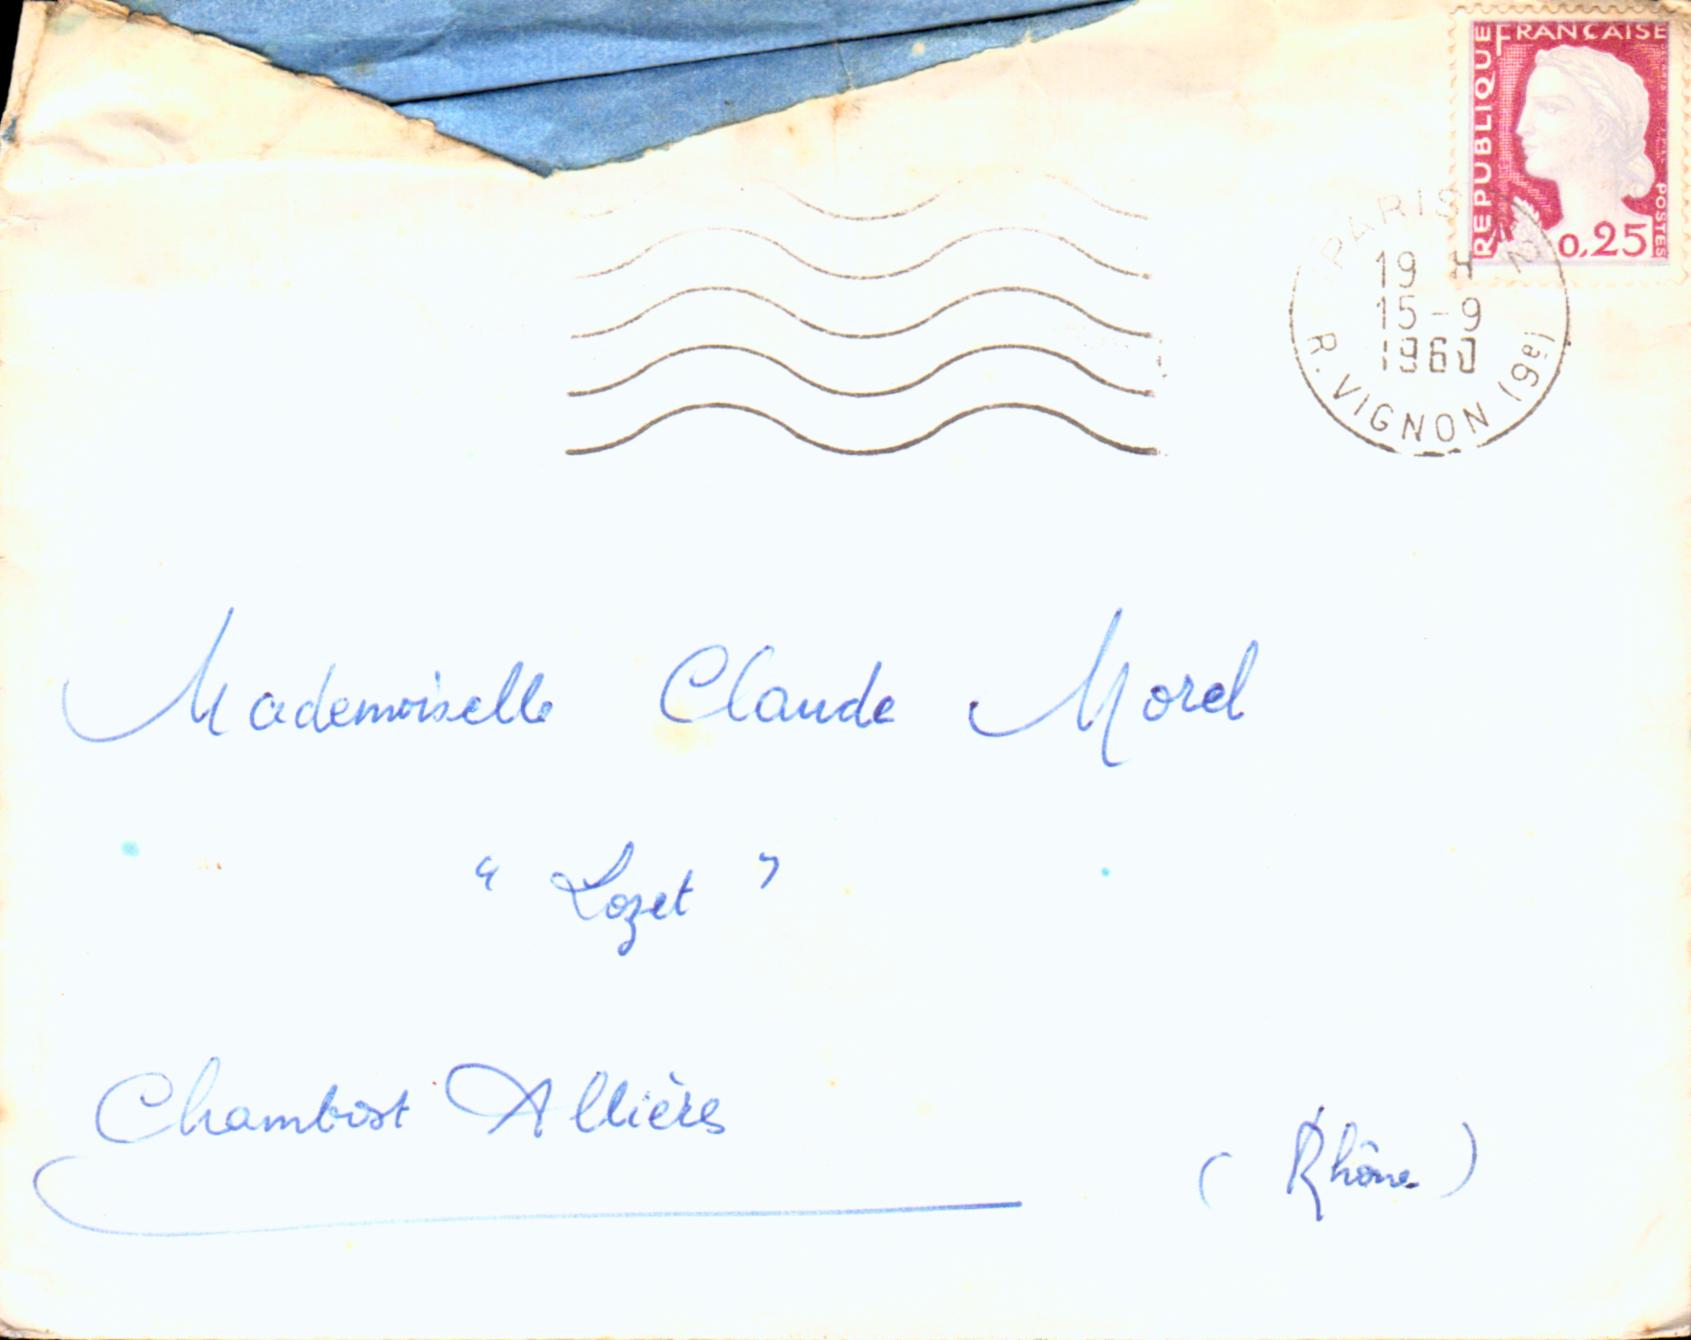 REPUBLIQUE FRANÇAISE
POSTES
0,25
PARIS
19 H
15-9
1960
R. VIGNON (9e)
Mademoiselle Claude Morel
"Lozet"
Chambost Allières
(Rhône)